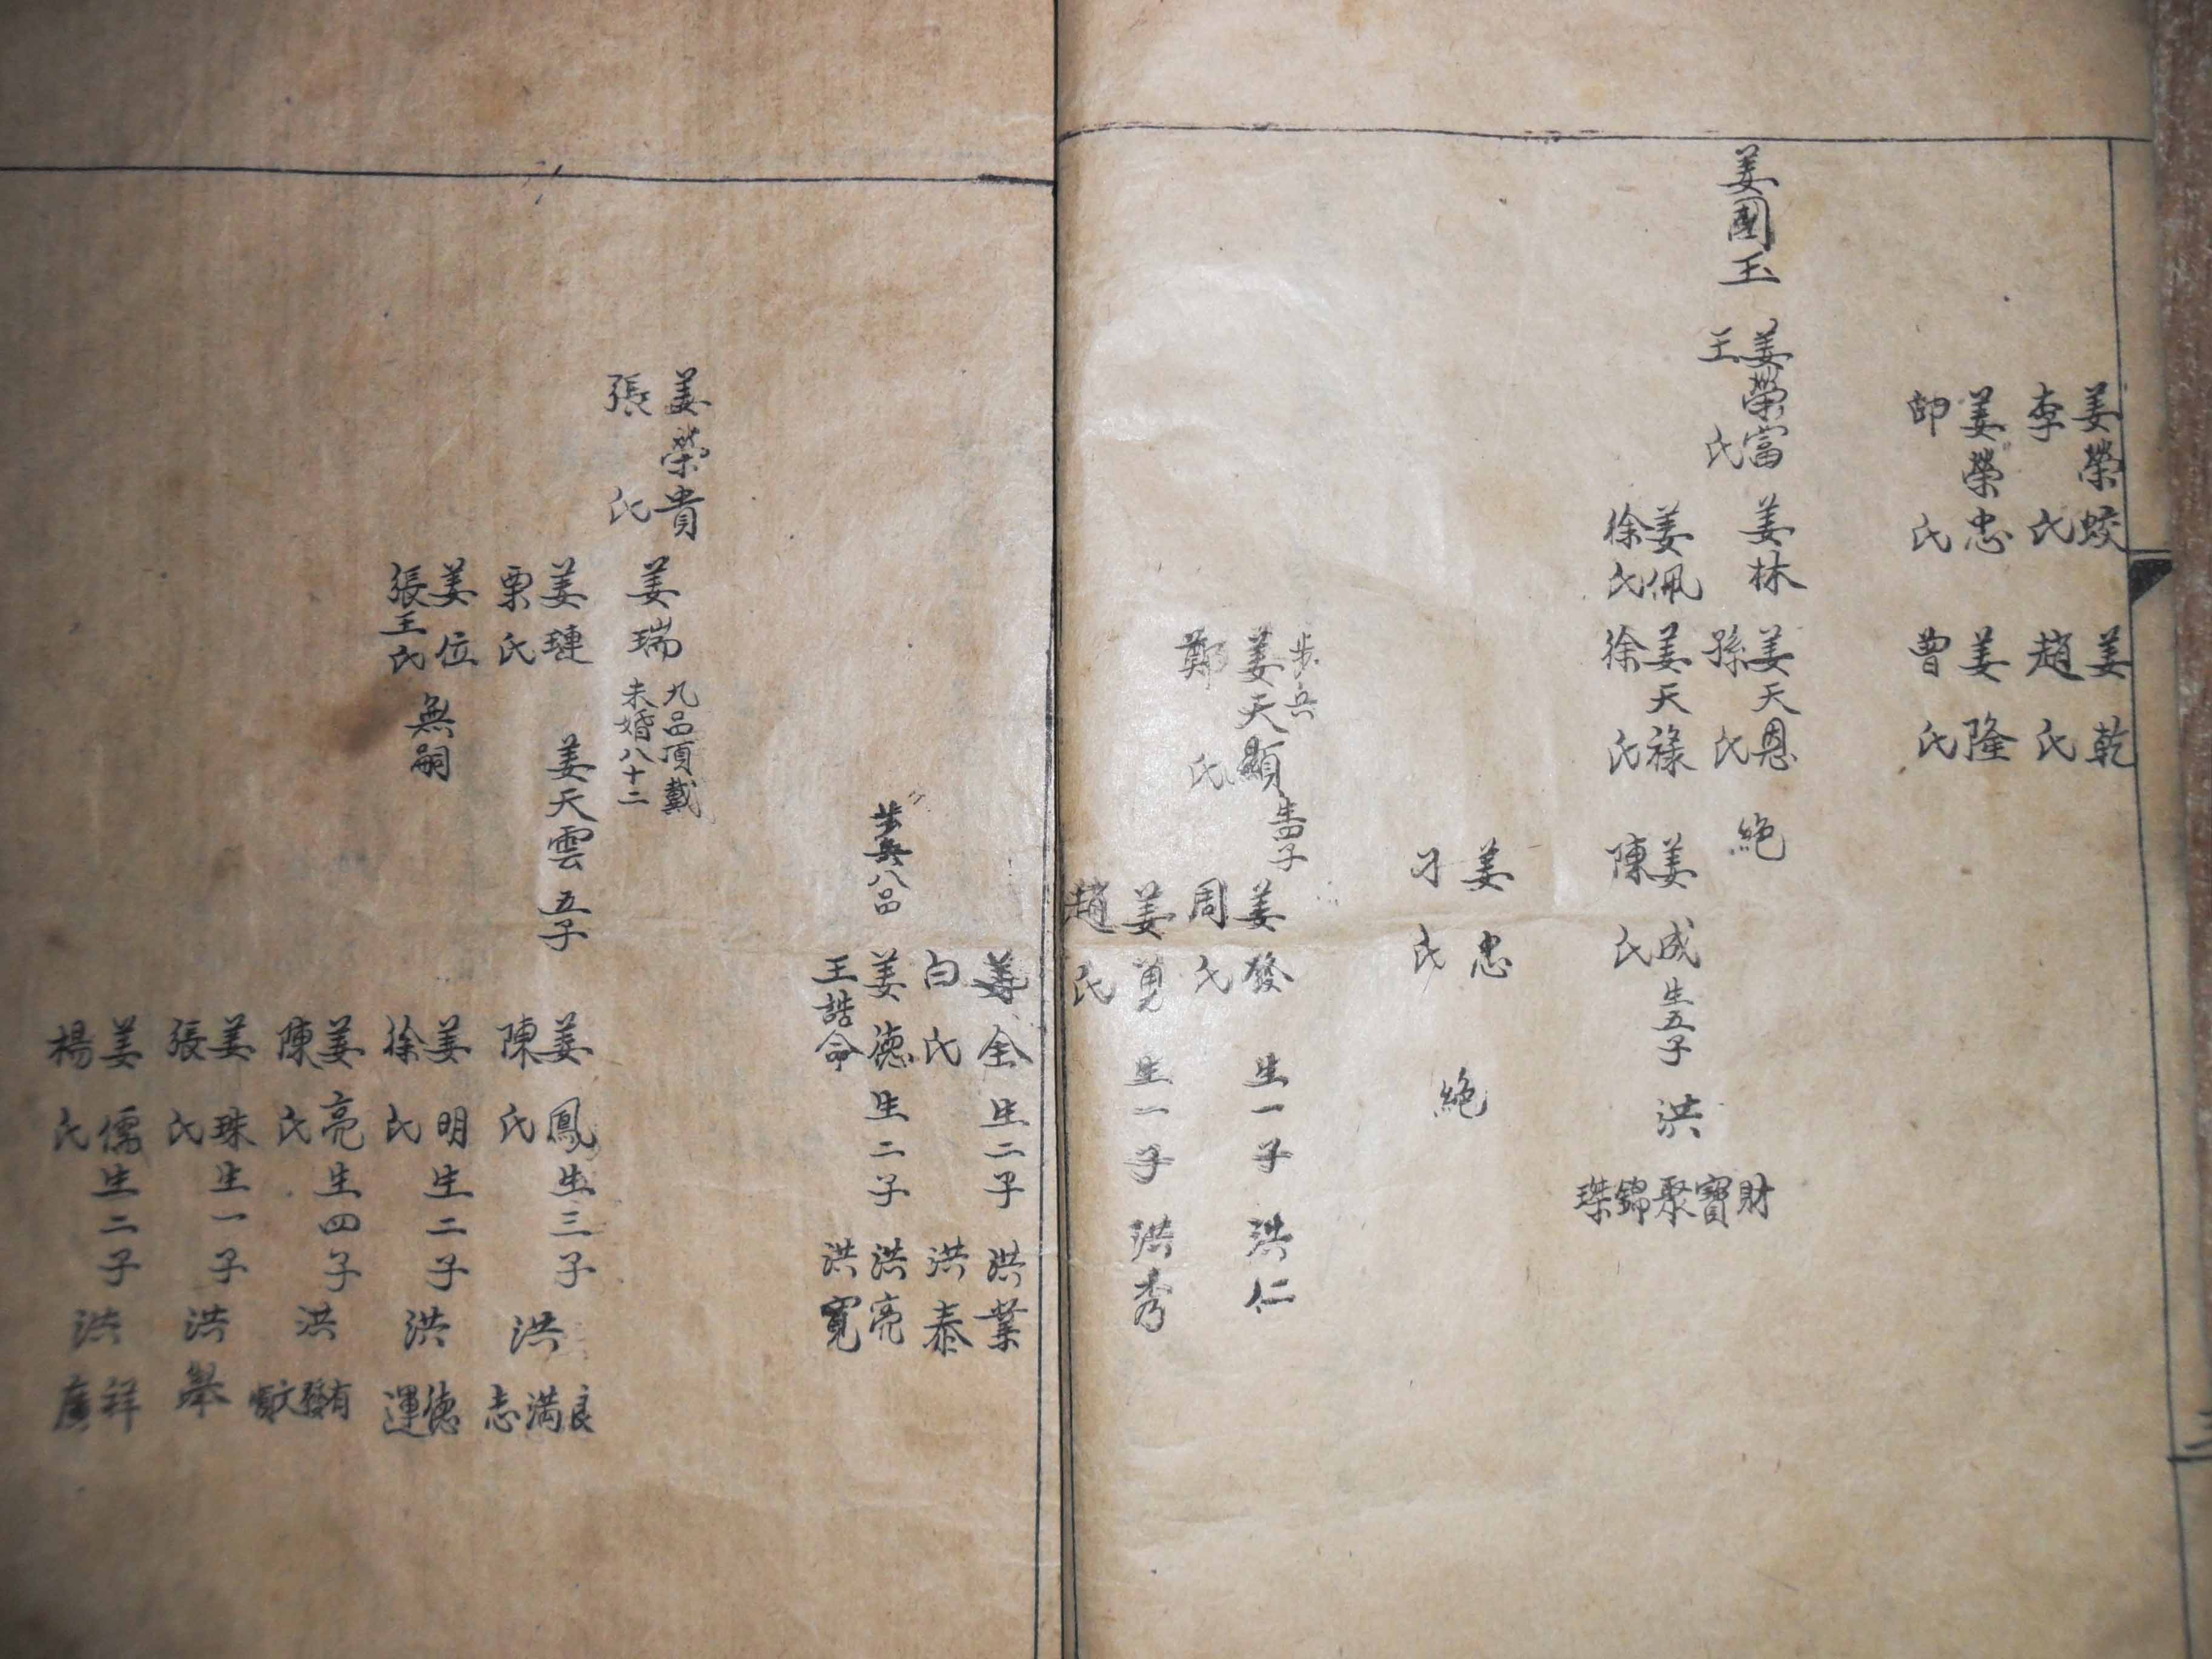 姜榮蛟
李氏
姜乾
趙氏
姜榮忠
邱氏
姜隆
曹氏
姜國玉
姜榮富
王氏
姜林
姜天恩
孫氏
絶
姜佩
徐氏
姜天祿
徐氏
姜成生五子
陳氏
洪
財寶聚錦琹
姜忠
刁氏
絶
步兵
姜天顯生四子
鄭氏
姜發生一子洪仁
周氏
姜寬生一子洪秀
趙氏
姜全生二子洪業
白氏洪泰
步兵八品
姜德生二子洪亮
王誥命洪寬
姜榮貴
張氏
姜瑞
九品頂戴
未婚八十二
姜璉
栗氏
姜天雲五子
姜位
張王氏
無嗣
姜鳳生三子
陳氏
洪
良滿志
姜明生二子
徐氏
洪
德運
姜亮生四子
陳氏
洪
有發文
姜珠生一子
張氏
洪舉
姜儒生二子
楊氏
洪
祥廣